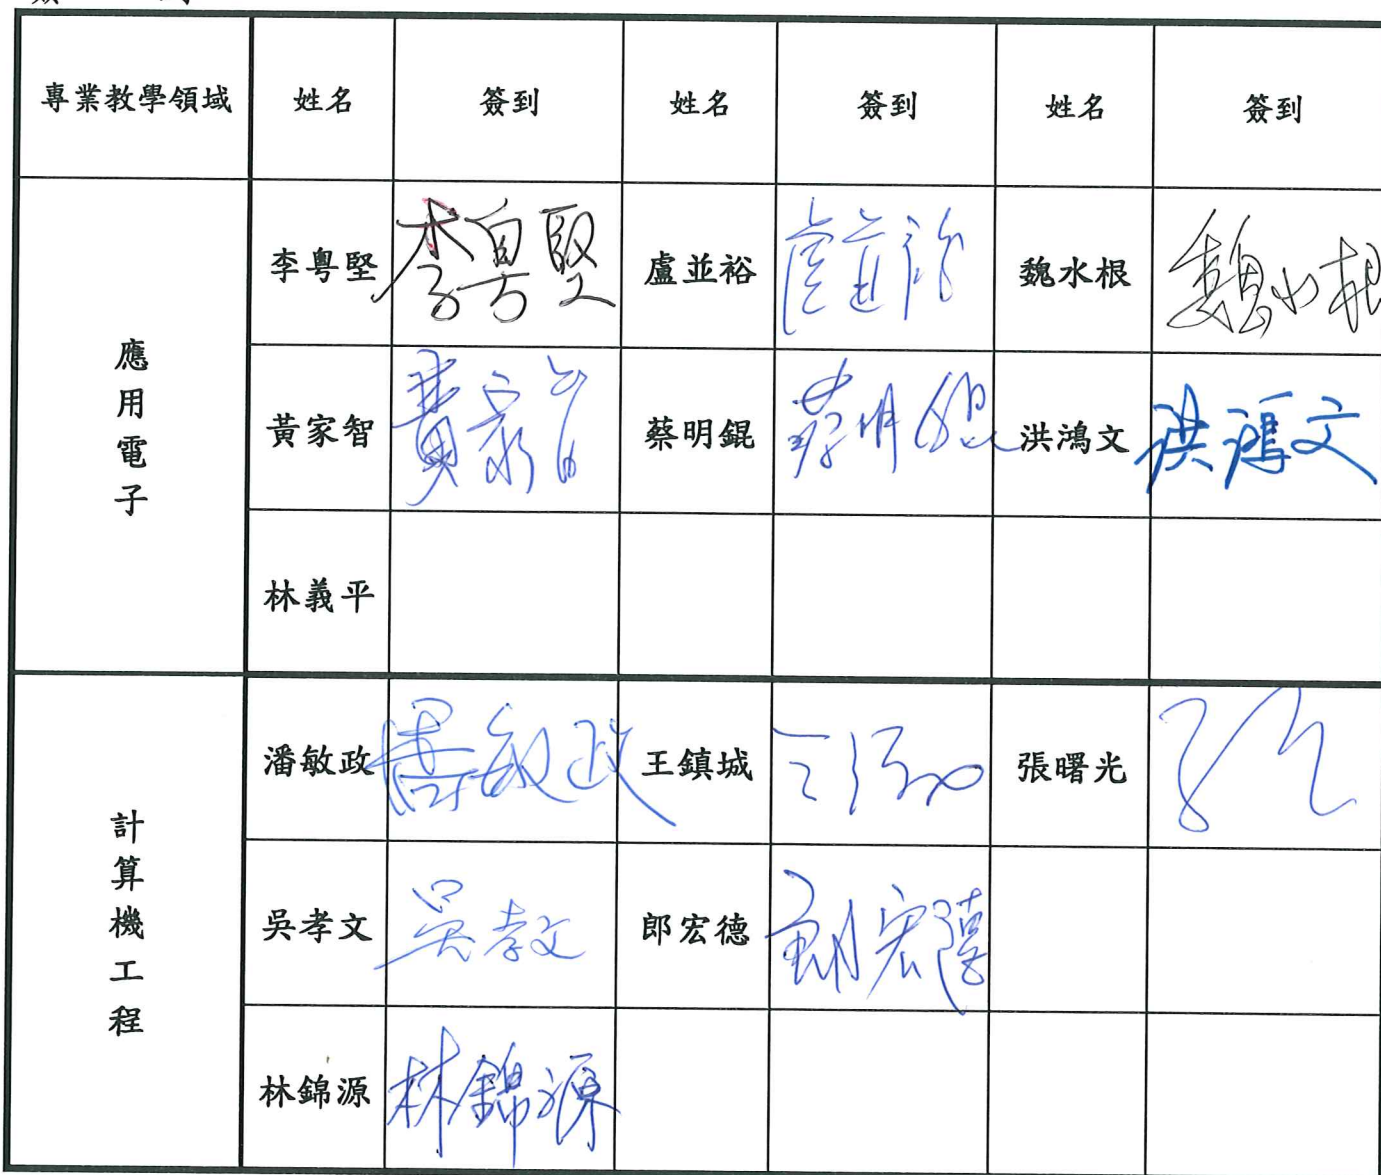 專業教學領域 姓名 簽到 姓名 簽到 姓名 簽到
應用電子
李粵堅 李粵堅 盧並裕 盧並裕 魏水根 魏水根
黃家智 黃家智 蔡明錕 蔡明錕 洪鴻文 洪鴻文
林義平
計算機工程
潘敏政 潘敏政 王鎮城 張曙光
吳孝文 吳孝文 郎宏德 郎宏德
林錦源 林錦源